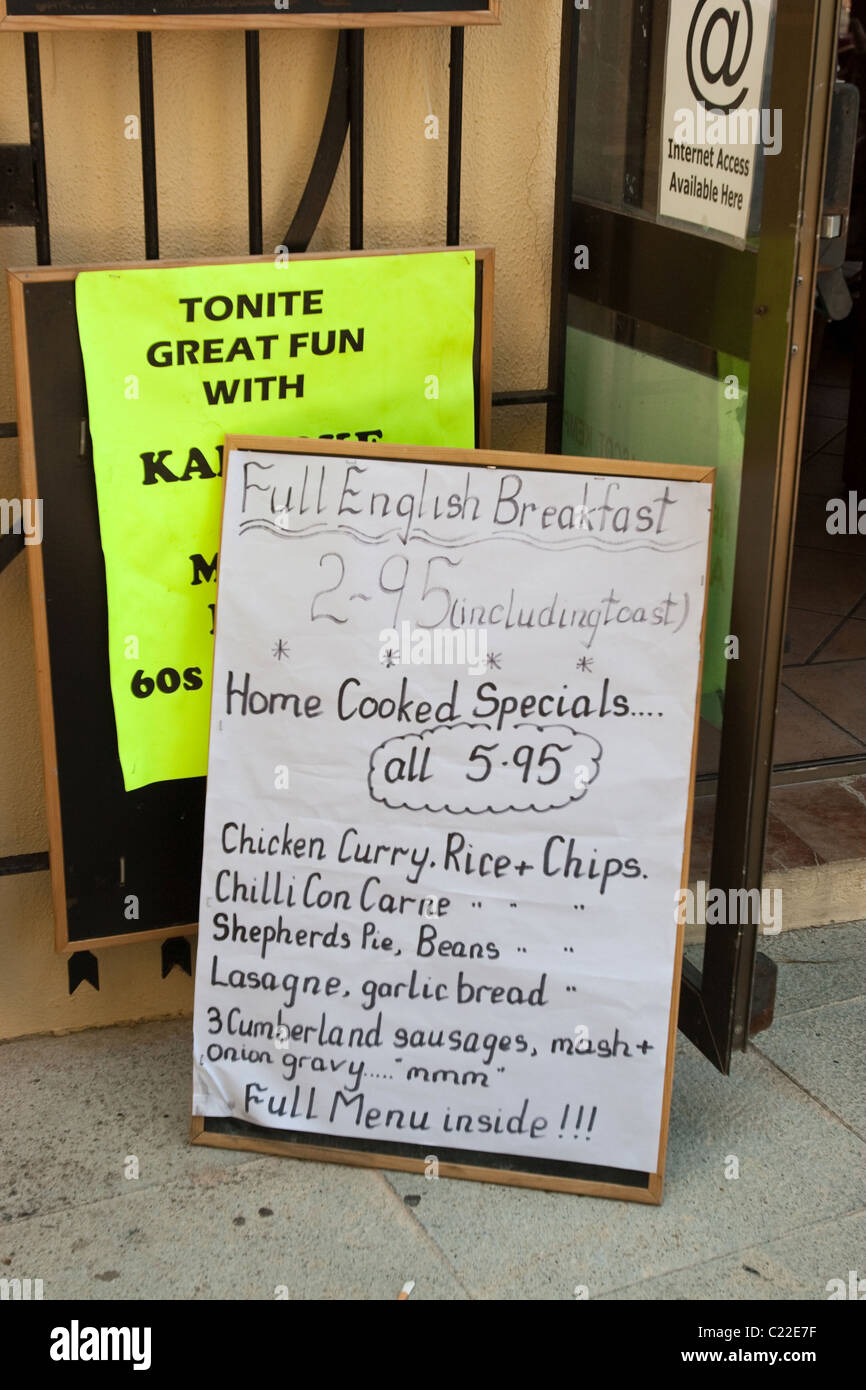 @
Internet Access
Available Here
TONITE
GREAT FUN
WITH
60s
Full English Breakfast
2-95 (including toast)
* * * *
Home Cooked Specials....
all 5.95
Chicken Curry. Rice + Chips.
Chilli Con Carne " " "
Shepherds Pie, Beans " "
Lasagne, garlic bread "
3 Cumberland sausages, mash +
onion gravy..... "mmm"
Full Menu inside !!!
alamy
Image ID: C22E7F
www.alamy.com